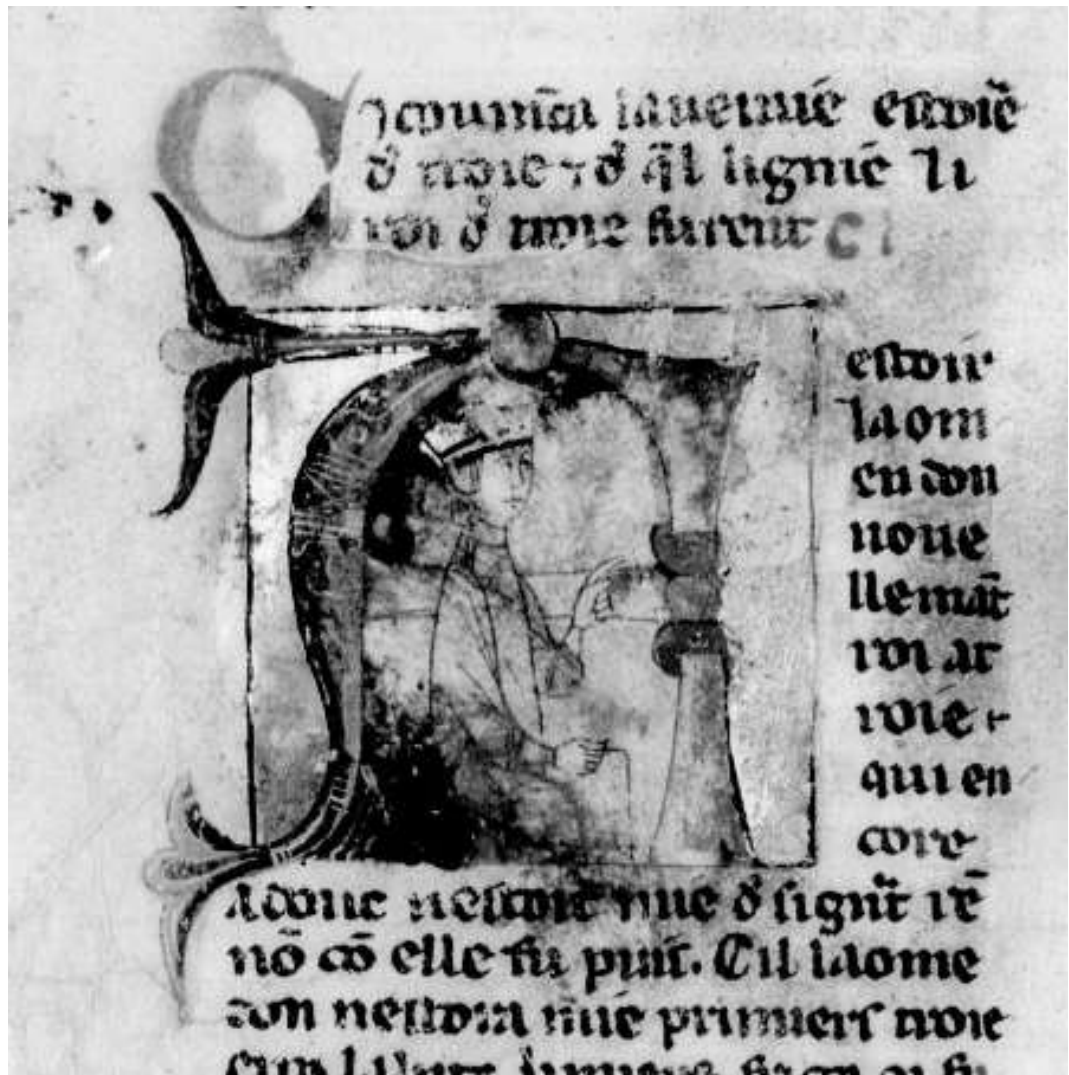 Ci coumēca la ueraie estoire
đ troie ⁊ đ q̄l lignie li
roi đ troie furent CI
A estoit
laom
en don
noue
llemāt
roi at
roie ⁊
qui en
core
adonc nestoit mie đ si gnt re
nō cō elle fu puis. Cil laome
don nestora mie primiers troie